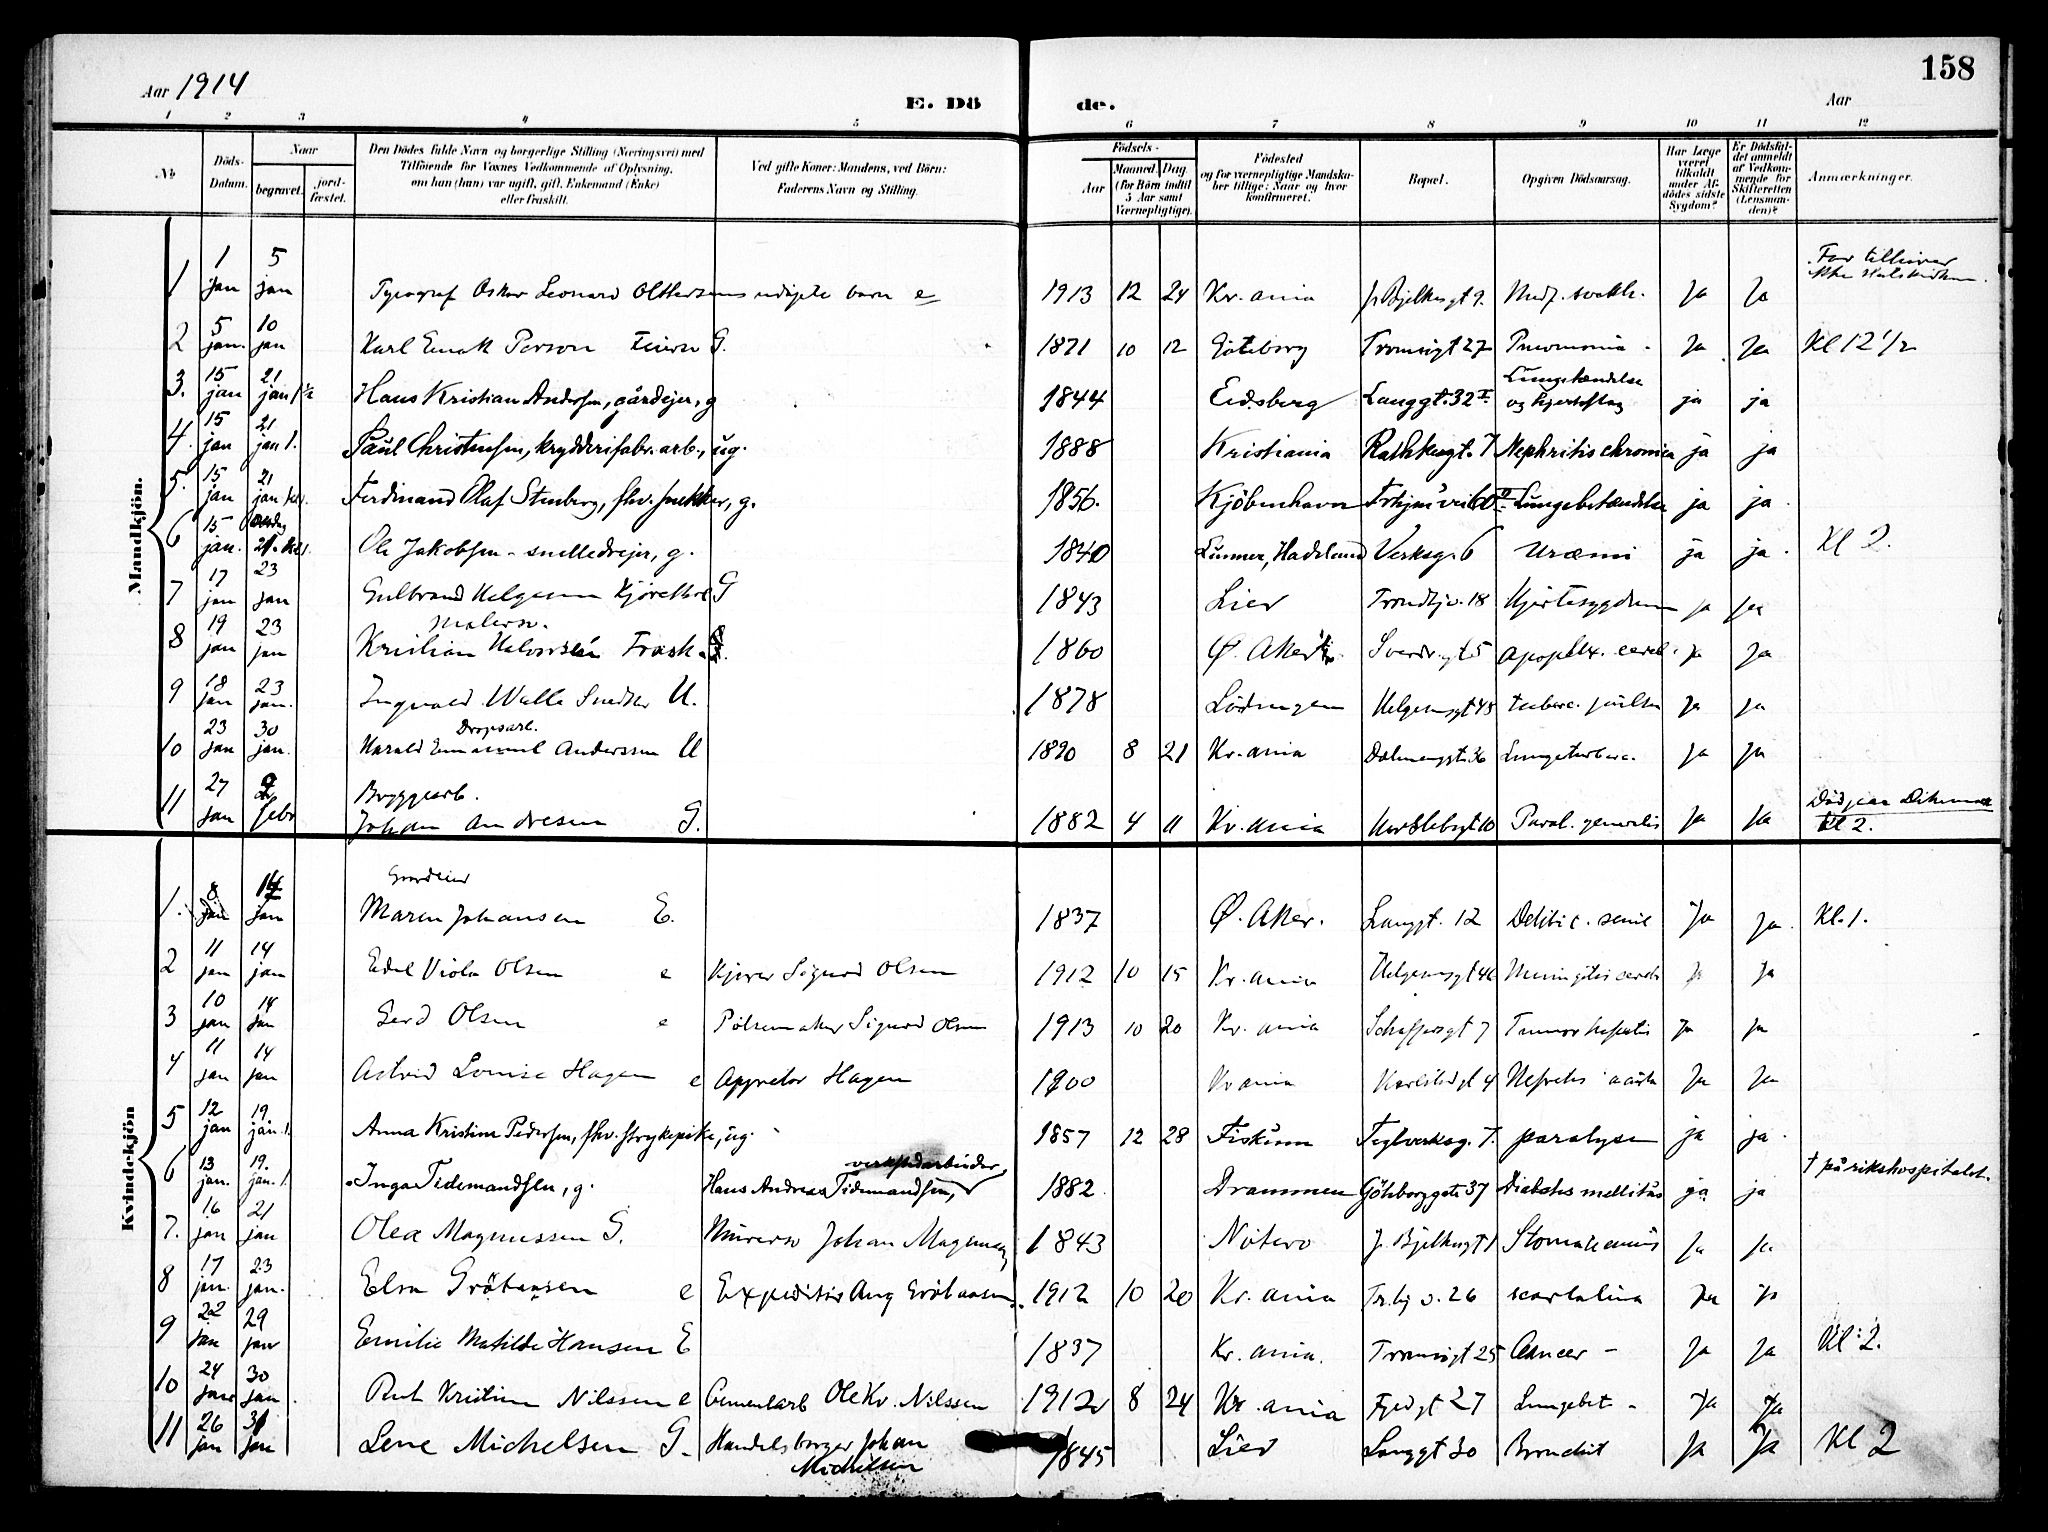 158
Aar 1914
E. Dö de.
Aar
1 2 3 4 5 6 7 8 9 10 11 12
No
Döds-Datum.
Naar
begravet.
jord-fæstet.
Den Dödes fulde Navn og borgerlige Stilling (Næringsvei) med
Tilföiende for Voxnes Vedkommende af Oplysning,
om han (hun) var ugift, gift, Enkemand (Enke)
eller fraskilt.
Ved gifte Koner: Mandens, ved Börn:
Faderens Navn og Stilling.
Födsels-
Aar
Maaned. Dag.
(for Börn indtil
5 Aar samt
Værnepligtige).
Födested
og for værnepligtige Mandska-
ber tillige: Naar og hvor
konfirmeret.
Bopæl.
Opgiven Dödsaarsag.
Har Læge
været
tilkaldt
under Af-
dödes sidste
Sygdom?
Er Dödsfal-
det anmeldt
af Vedkom-
mende for
Skifteretten
(Lensman-
den)?
Anmærkninger.
Mandkjön.
1 1 jan 5 jan Typograf Oskar Leonard barn e 1913 12 24 Kr.ania Ja Ja
2 5 jan. 10 jan Karl Person G. 1871 10 12 Göteborg Tromsögt 27 Pneumonia Ja Ja Kl 12 1/2
3. 15 jan 21 jan 1 1/2 Hans Kristian Andersen, gårdejer, g 1844 Eidsberg Langgt. 32 II Lungebetændelse og hjerteslag ja ja
4. 15 jan 21 jan 1. Paul Christensen, krydderifabr. arb., ug. 1888 Kristiania Rathkesgt. 7 Nephritis chronica ja ja
5. 15 jan 21 jan Ferdinand Olaf Stenberg, fhv. snekker, g. 1856. Kjöbenhavn Lungebetændelse ja ja.
6 15 jan. 21. Ole Jakobsen - snelledrejer, g. 1840 Lunner, Hadeland Verksg. 6 Uræmi ja ja. Kl 2.
7 17 jan 23 jan Gulbrand Helgesen G 1843 Lier Trondhjv. 18 Hjertesygdom ja Ja
8 19 jan 23 jan Malersv. Kristian Halvorsen Frask. 1860 Ø. Aker Sverdr.gt 5 apoplex. cereb. Ja Ja
9 18 jan 23 jan. Ingvald Walle Snedker U. 1878 Lödingen Helgesensgt 45 tuberc. pulm Ja Ja
10 23 jan 30 jan. Dropsarb. Harald Emanuel Anderssen U 1890 8 21 Kr.ania Dælenenggt. 36 Lungetuberc. Ja Ja
11 27 jan 2 febr Bryggearb. Johan Andresen G. 1882 4 11 Kr.ania 10 Paral. generalis Ja Ja Död paa Dikemark Kl 2.
Kvindekjön
1. 8 jan 14 jan Maren Johansen E. 1837 Ø. Aker. Langgt. 12 senil Ja Ja. Kl. 1.
2 11 jan 14 jan Edel Viola Olsen e Kjører Sigurd Olsen 1912 10 15 Kr.ania Helgesensgt 46 Meningitis cereb Ja Ja
3 10 jan 14 jan Gerd Olsen e Pölsemaker Sigurd Olsen 1913 10 20 Kr.ania Schaffersgt 7 Tumor hepatis Ja Ja
4 11 jan 14 jan Astrid Louise Hagen e Appretør Hagen 1900 Kr ania Karlstadgt 4 Nefritis acuta Ja Ja
5 12 jan 19. jan. 1. Anna Kristine Pedersen, fhv. strykepike, ug. 1857 12 28 Fiskum Teglverksg. 7. paralysen ja ja.
6 13 jan. 19. jan. 1 Inga Tidemandsen, g. Hans Andreas Tidemandsen, verkstedarbeider 1882. Drammen Göteborggate 37 Diabetes mellitus ja ja † på rikshospitalet.
7. 16 jan 21 jan Olea Magnussen G. Murersv Johan Magnussen 1843 Nøterø J. Bjelkesgt 1 Ja Ja
8 17 jan. 23 jan. Elsa Gröttansen e Expeditör Aug Gröttansen 1912 10 20 Kr.ania Tr.hj v. 26 scarlatina Ja Ja
9 22 jan 29 jan Emilie Matilde Hansen E 1837 Kr.ania. Tromsögt 25 Cancer - Ja Ja Kl: 2.
10 24 jan 30 jan. Rut Kristine Nilssen e Cementarb Ole Kr. Nilssen 1912 8 24 Kr.ania Fjeldgt 27 Lungebet - Ja Ja
11 26 jan 31 jan Lene Michelsen G. Handelsborger Johan Michelsen 1845 Lier Langgt 30 Bronchit Ja Ja Kl 2